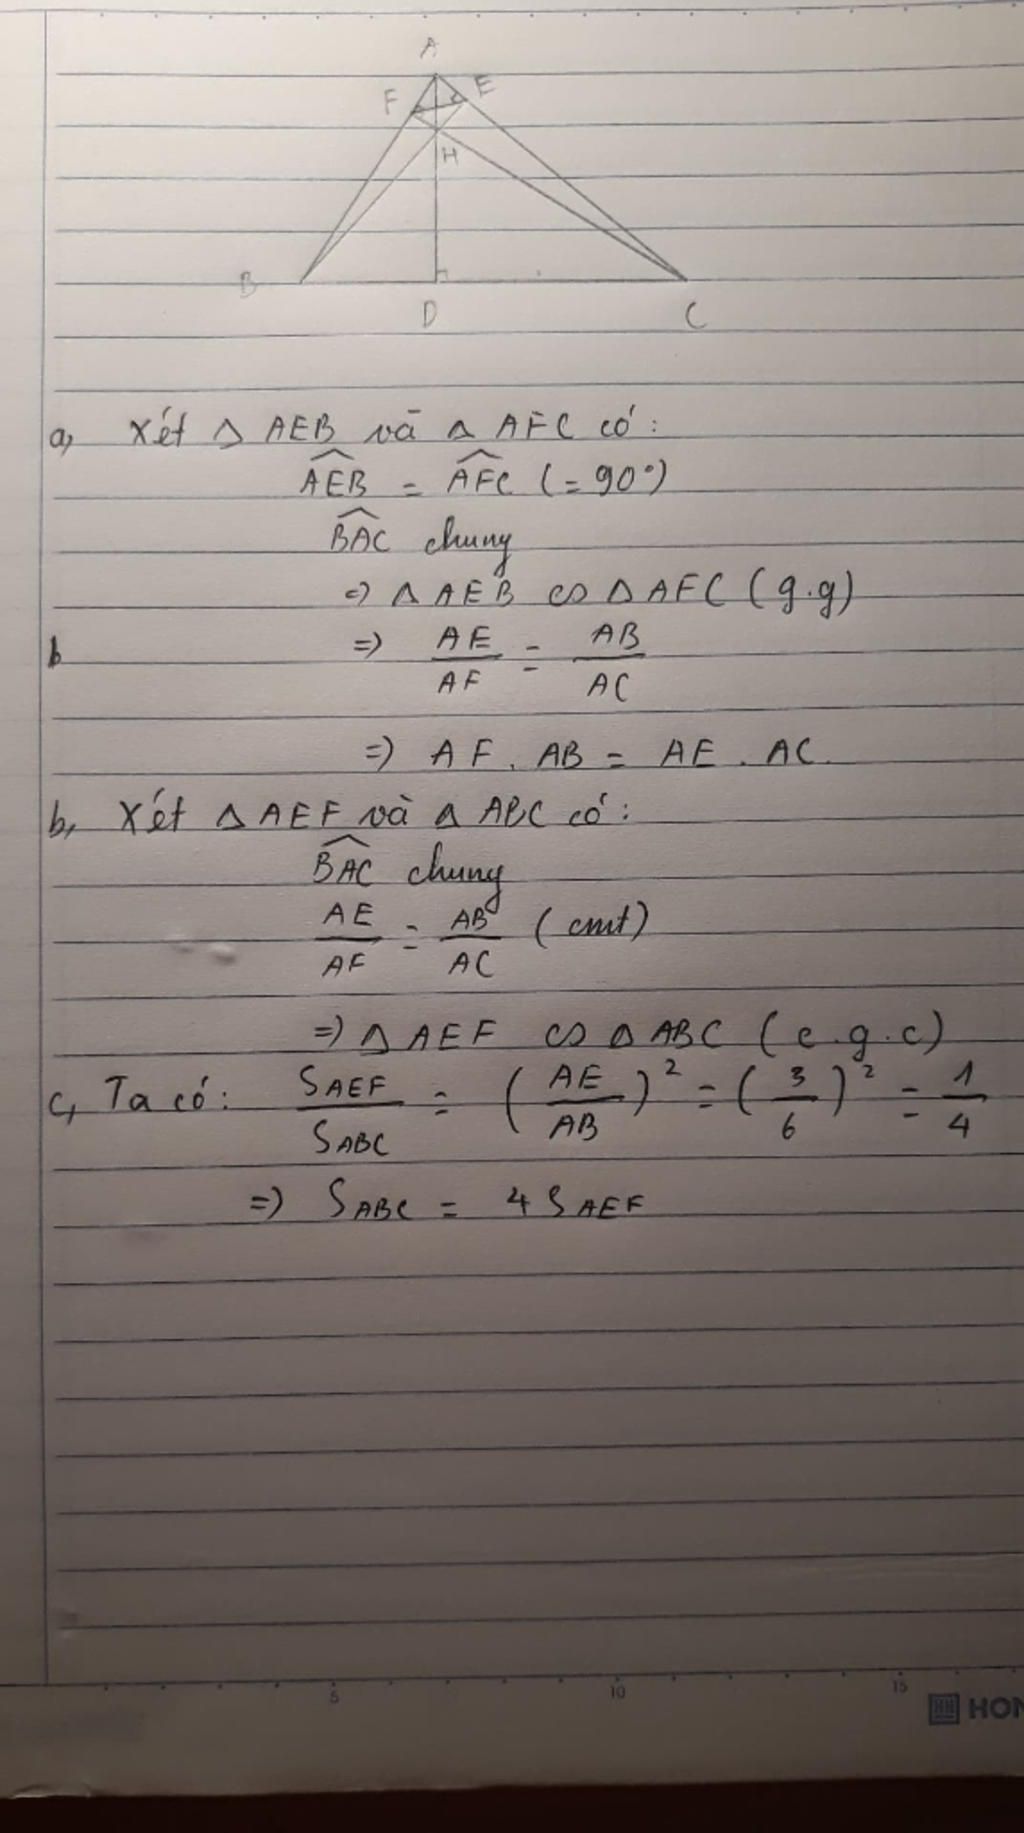 A
F E
H
B D C
a, Xét Δ AEB và Δ AFC có:
$\widehat{AEB} = \widehat{AFC}$ (= 90°)
$\widehat{BAC}$ chung
=> Δ AEB ∽ Δ AFC (g.g)
b => $\frac{AE}{AF} = \frac{AB}{AC}$
=> AF . AB = AE . AC.
b, Xét Δ AEF và Δ ABC có:
$\widehat{BAC}$ chung
$\frac{AE}{AF} = \frac{AB}{AC}$ (cmt)
=> Δ AEF ∽ Δ ABC (c.g.c)
c, Ta có: $\frac{S_{AEF}}{S_{ABC}} = \left(\frac{AE}{AB}\right)^2 = \left(\frac{3}{6}\right)^2 = \frac{1}{4}$
=> $S_{ABC} = 4 S_{AEF}$
5 10 15
HON